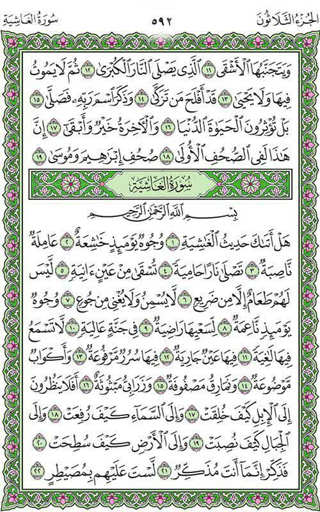 الجزء الثلاثون ٥٩٢ سورة الغاشية
وَيَتَجَنَّبُهَا ٱلْأَشْقَى ١١ ٱلَّذِى يَصْلَى ٱلنَّارَ ٱلْكُبْرَىٰ ١٢ ثُمَّ لَا يَمُوتُ
فِيهَا وَلَا يَحْيَىٰ ١٣ قَدْ أَفْلَحَ مَن تَزَكَّىٰ ١٤ وَذَكَرَ ٱسْمَ رَبِّهِۦ فَصَلَّىٰ ١٥
بَلْ تُؤْثِرُونَ ٱلْحَيَوٰةَ ٱلدُّنْيَا ١٦ وَٱلْآخِرَةُ خَيْرٌ وَأَبْقَىٰٓ ١٧ إِنَّ
هَٰذَا لَفِى ٱلصُّحُفِ ٱلْأُولَىٰ ١٨ صُحُفِ إِبْرَٰهِيمَ وَمُوسَىٰ ١٩
سُورَةُ الغَاشِيَةِ
بِسْمِ ٱللَّهِ ٱلرَّحْمَٰنِ ٱلرَّحِيمِ
هَلْ أَتَىٰكَ حَدِيثُ ٱلْغَٰشِيَةِ ١ وُجُوهٌ يَوْمَئِذٍ خَٰشِعَةٌ ٢ عَامِلَةٌ
نَّاصِبَةٌ ٣ تَصْلَىٰ نَارًا حَامِيَةً ٤ تُسْقَىٰ مِنْ عَيْنٍ ءَانِيَةٍ ٥ لَّيْسَ
لَهُمْ طَعَامٌ إِلَّا مِن ضَرِيعٍ ٦ لَّا يُسْمِنُ وَلَا يُغْنِى مِن جُوعٍ ٧ وُجُوهٌ
يَوْمَئِذٍ نَّاعِمَةٌ ٨ لِّسَعْيِهَا رَاضِيَةٌ ٩ فِى جَنَّةٍ عَالِيَةٍ ١٠ لَّا تَسْمَعُ
فِيهَا لَٰغِيَةً ١١ فِيهَا عَيْنٌ جَارِيَةٌ ١٢ فِيهَا سُرُرٌ مَّرْفُوعَةٌ ١٣ وَأَكْوَابٌ
مَّوْضُوعَةٌ ١٤ وَنَمَارِقُ مَصْفُوفَةٌ ١٥ وَزَرَابِىُّ مَبْثُوثَةٌ ١٦ أَفَلَا يَنظُرُونَ
إِلَى ٱلْإِبِلِ كَيْفَ خُلِقَتْ ١٧ وَإِلَى ٱلسَّمَآءِ كَيْفَ رُفِعَتْ ١٨ وَإِلَى
ٱلْجِبَالِ كَيْفَ نُصِبَتْ ١٩ وَإِلَى ٱلْأَرْضِ كَيْفَ سُطِحَتْ ٢٠
فَذَكِّرْ إِنَّمَآ أَنتَ مُذَكِّرٌ ٢١ لَّسْتَ عَلَيْهِم بِمُصَيْطِرٍ ٢٢